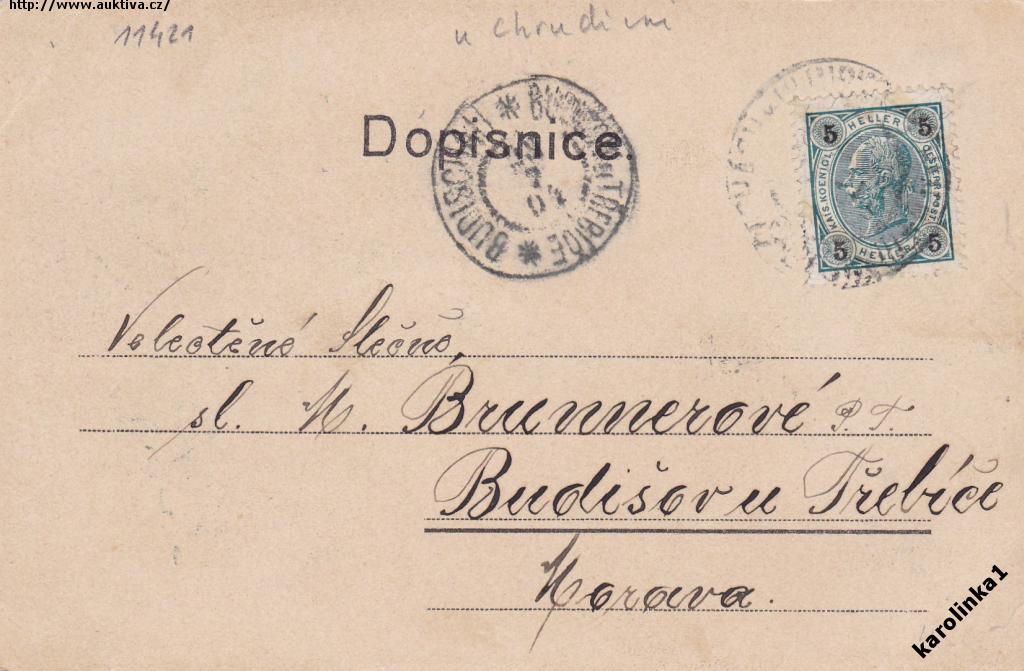 http://www.auktiva.cz/
11421
u Chrudimi
Dopisnice.
BUDISCHAU * BUDIŠOV U TŘEBÍČE *
7
04
5 HELLER 5
KAIS. KOENIGL. OESTERR. POST.
5 HELLER 5
Velectěné Slečně,
sl. M. Brunnerové P.T.
Budišov u Třebíče
Morava.
karolinka1